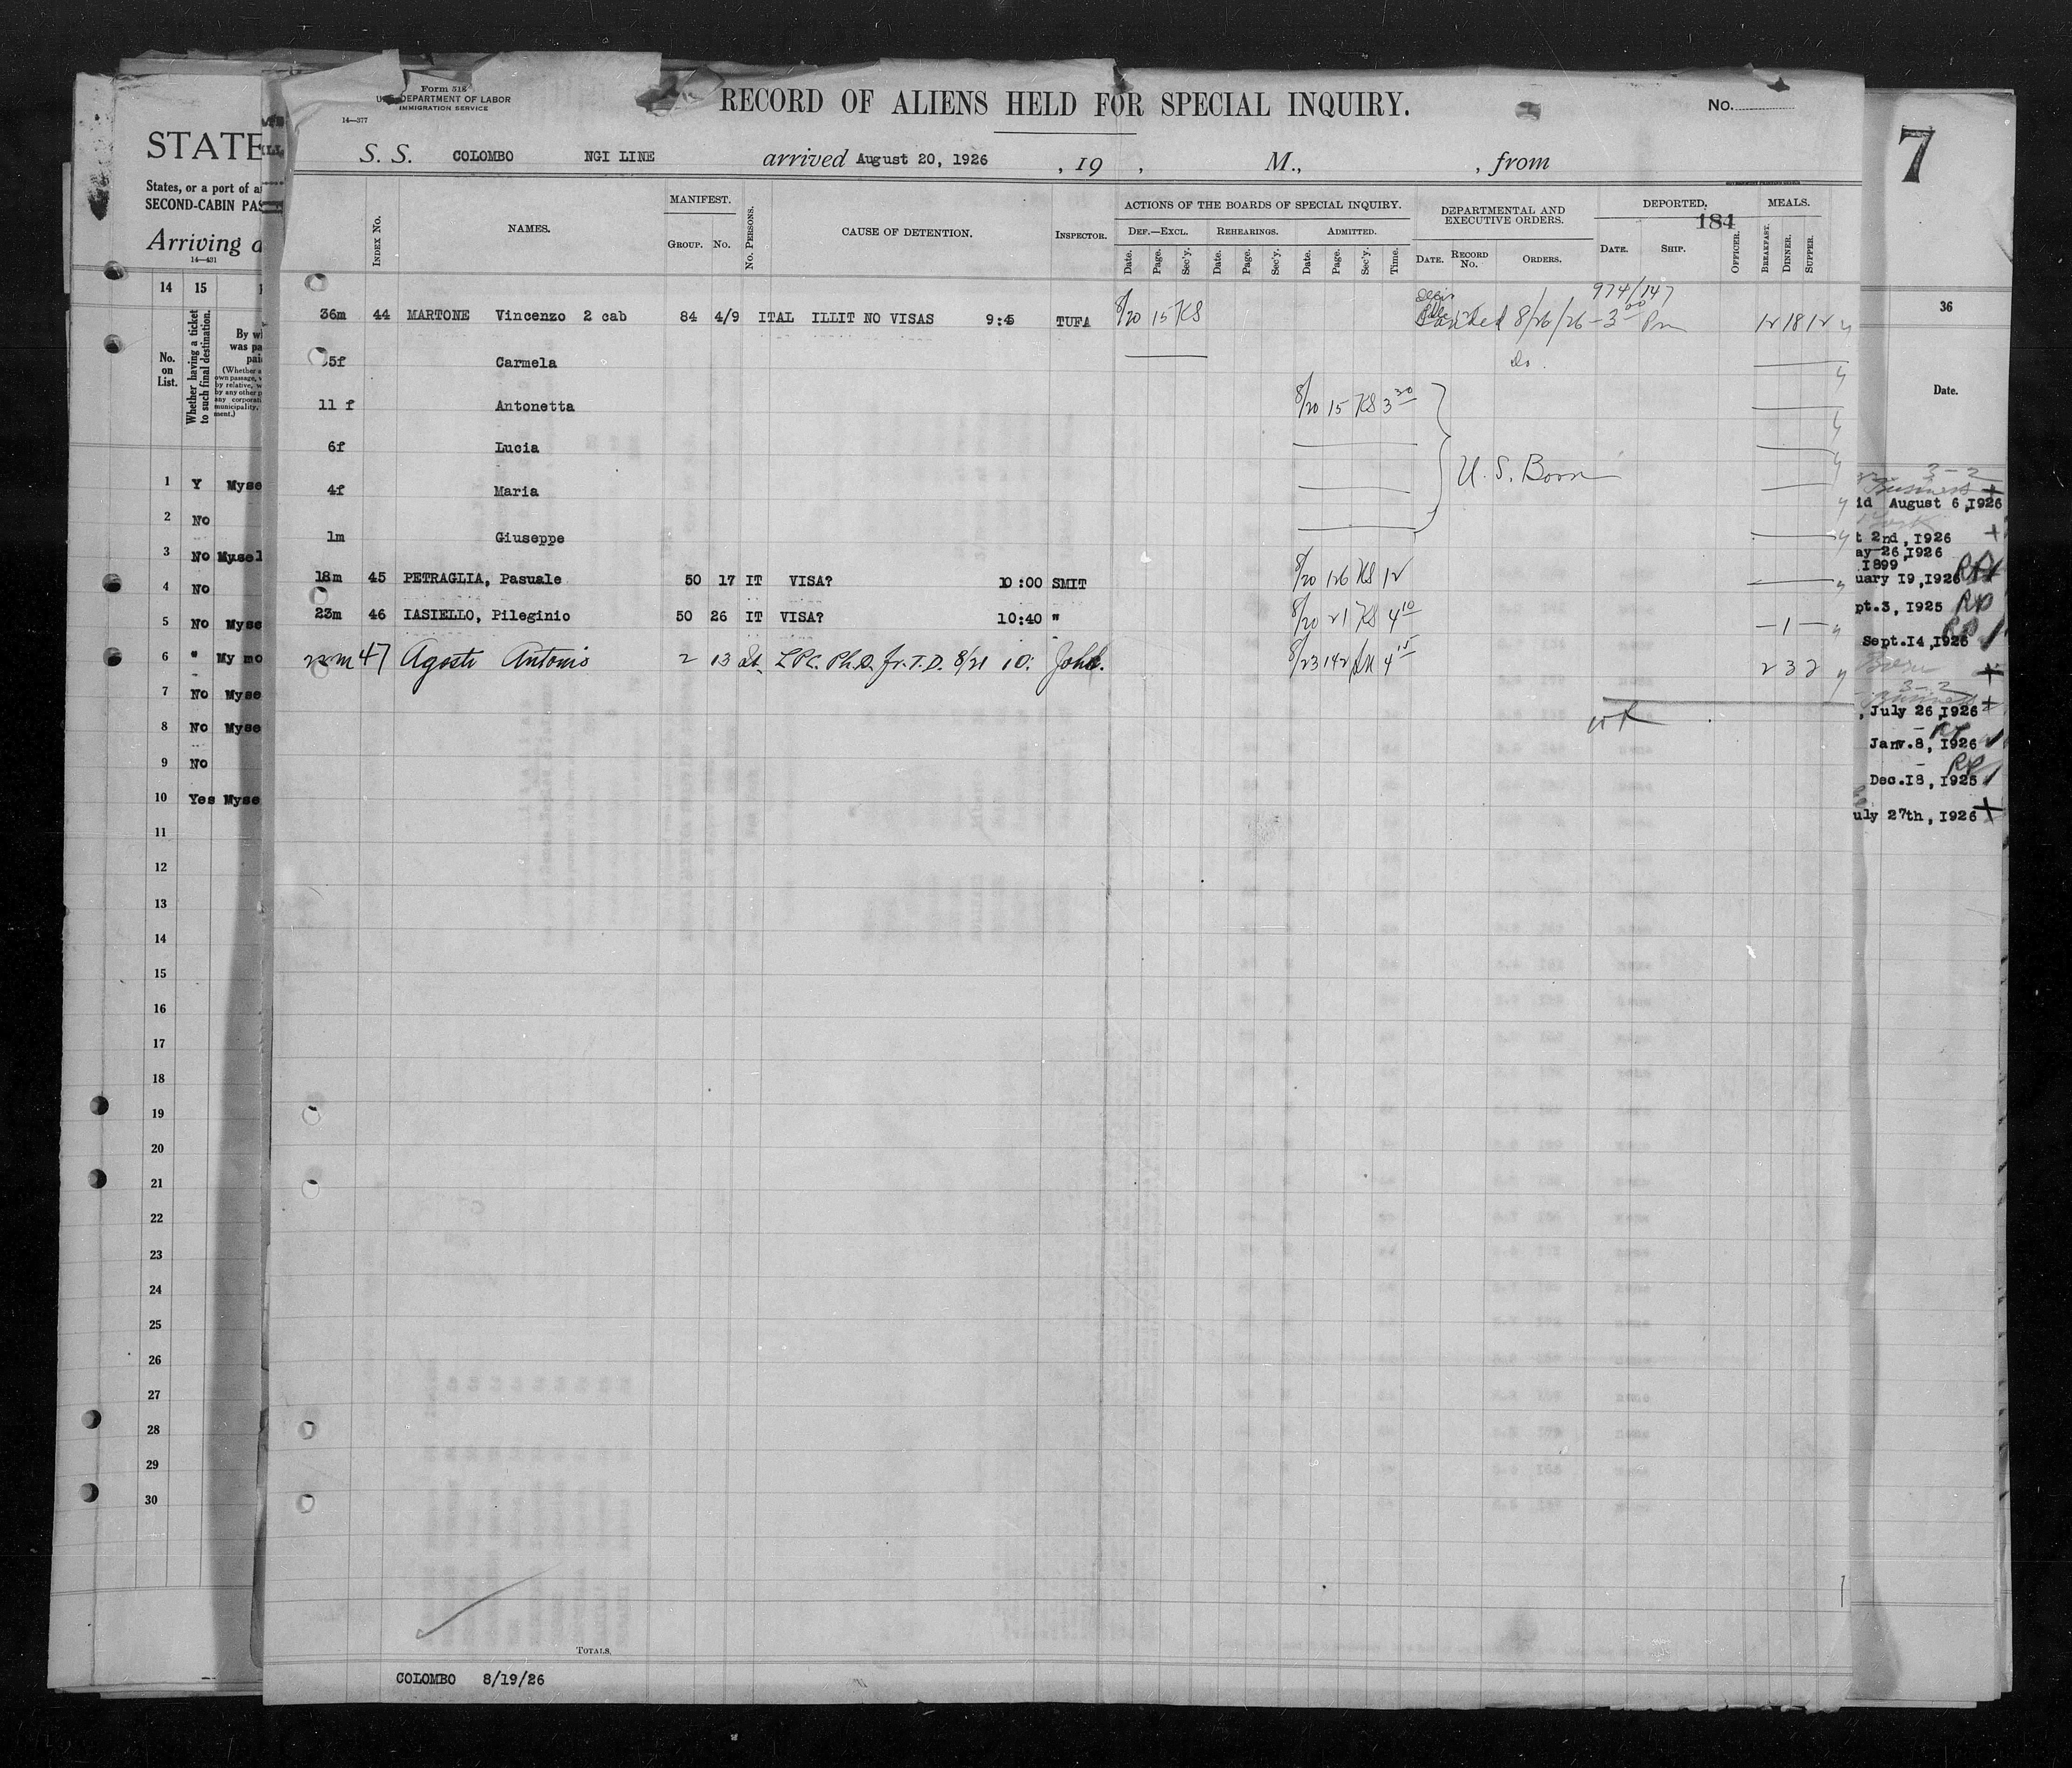 Form 518
DEPARTMENT OF LABOR
IMMIGRATION SERVICE
14—377
RECORD OF ALIENS HELD FOR SPECIAL INQUIRY.
No.
S. S. COLOMBO NGI LINE arrived August 20, 1926 , 19 , M., , from
184
INDEX No. NAMES. MANIFEST. GROUP. No. No. PERSONS. CAUSE OF DETENTION. INSPECTOR.
ACTIONS OF THE BOARDS OF SPECIAL INQUIRY.
DEF.—EXCL. REHEARINGS. ADMITTED.
Date. Page. Sec'y. Date. Page. Sec'y. Date. Page. Sec'y. Time.
DEPARTMENTAL AND EXECUTIVE ORDERS.
DATE. RECORD No. ORDERS.
DEPORTED.
DATE. SHIP. OFFICER.
MEALS.
BREAKFAST. DINNER. SUPPER.
974/147
36m 44 MARTONE Vincenzo 2 cab 84 4/9 ITAL ILLIT NO VISAS 9:45 TUFA 8/20 15 KS 8/26/26 - 3 00 Pm 12 18 12
35f Carmela Do.
11 f Antonetta 8/20 15 KS 3 30
6f Lucia
U. S. Born
4f Maria
1m Giuseppe
18m 45 PETRAGLIA, Pasuale 50 17 IT VISA? 10:00 SMIT 8/20 126 KS 12
23m 46 IASIELLO, Pileginio 50 26 IT VISA? 10:40 " 8/20 21 KS 4 10 — 1 —
22m 47 Agosti Antonio 2 13 It. LPC. Ph.D. Fr. T. D. 8/21 10: John. 8/23 142 4 15 2 3 2
TOTALS.
COLOMBO 8/19/26
STATE
States, or a port of a
SECOND-CABIN PAS
Arriving a
14—431
14 15
No. on List.
Whether having a ticket to such final destination.
By w
was pa
pai
(Whether a
own passage, w
by relative, w
by any other p
any corporat
municipality,
ment.)
1 Y Myse
2 No
3 No Mysel
4 No
5 No Myse
6 " My mo
7 No Myse
8 No Myse
9 No
10 Yes Myse
11
12
13
14
15
16
17
18
19
20
21
22
23
24
25
26
27
28
29
30
7
36
Date.
3-2
Business
id August 6, 1926
t 2nd, 1926
ay 26, 1926
1899
uary 19, 1926
pt. 3, 1925
Sept. 14, 1926
3-2
, July 26, 1926
Jan. 8, 1926
Dec. 18, 1925
uly 27th, 1926